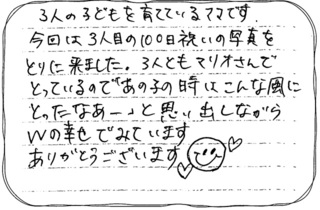 3人の子どもを育てているママです.
今回は3人目の100日祝いの写真を
とりに来ました。3人ともマリオさんで
とっているので"あの子の時はこんな風に
とったなあー"と思い出しながら
Wの幸せでみています
ありがとうございます